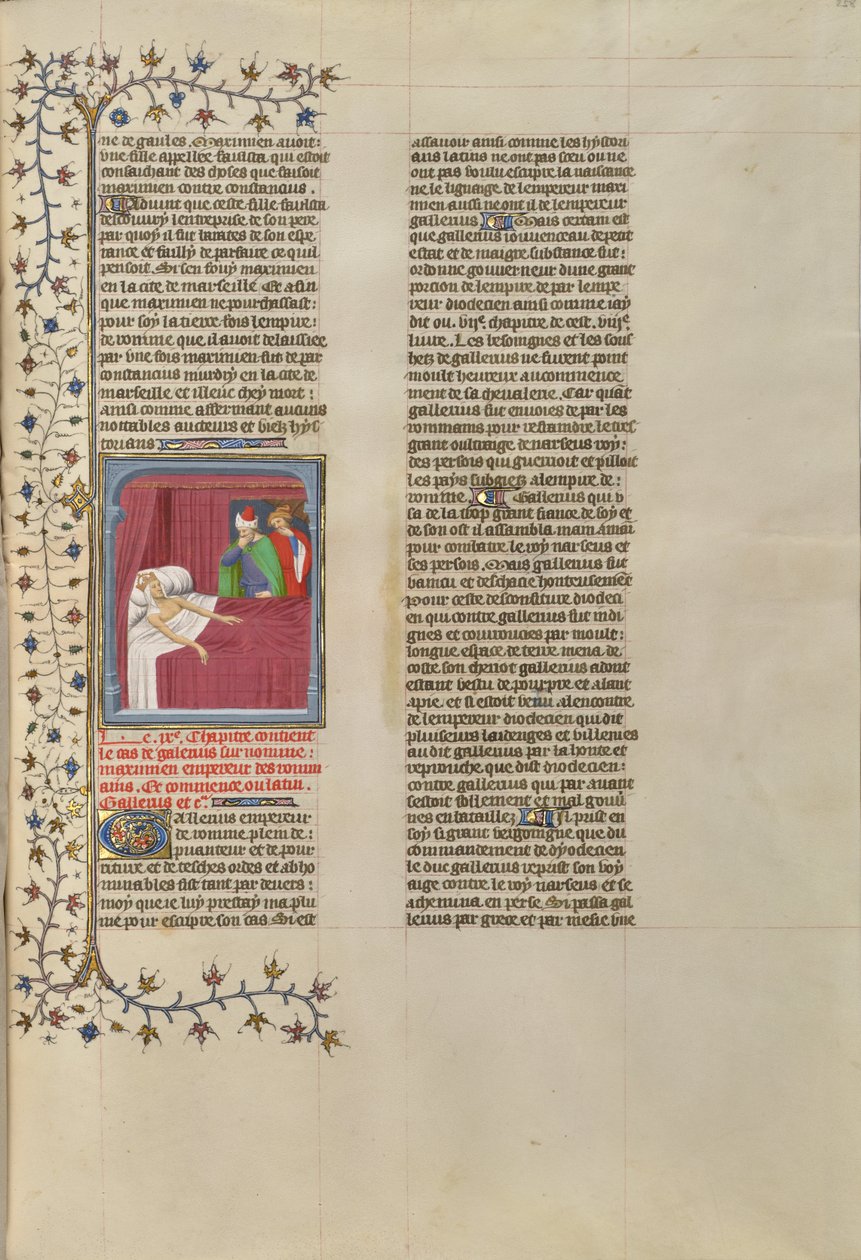 258
ne de gaules. Maximien auoit:
vne fille appellee fausta qui estoit
consachant des choses que faisoit
maximien contre constancius.
Aduint que ceste fille fausta
descouury lentreprise de son pere
par quoy il fut baretes de son espe
rance et failly de parfaire ce quil
pensoit. Si sen fouy maximien
en la cite de marseille. Et afin
que maximien ne pourchassast:
pour soy la tierce fois lempire:
de romme que il auoit delaissee
par vne fois maximien fut de par
constancius murdry en la cite de
marseille et illeuc chey mort:
ainsi comme afferment aucuns
nottables aucteurs et vielz hys
torians
Le .ixe. Chapitre contient
le cas de galerius surnomme:
maximien empereur des rom
ains. Et commence ou latin.
Gallerius et cͣ.
Gallerius empereur
de romme plein de:
puanteur et de pour
riture et de tesches ordes et abho
minables fist tant par deuers:
moy que ie luy prestay ma plu
me pour escripre son cas. Si est
assauoir ainsi comme les hystori
ans latins ne ont pas sceu ou ne
ont pas voulu escripre la naissance
ne le lignaige de lempereur maxi
mien aussi ne ont il de lempereur
gallerius Mais certain est
que gallerius iouuenceau de petit
estat et de maigre substance fut:
ordonne gouuerneur dune grant
porcion de lempire de par lempe
reur dioclecien ainsi comme iay
dit ou .viie. chapitre de cest .viiie.
liure. Les besoingnes et les soub
hetz de gallerius ne furent point
moult heureux au commence
ment de sa cheualerie. Car quant
gallerius fut enuoies de par les
rommains pour restaindre le tres
grant oultraige de narseus roy:
des persois qui guerrioit et pilloit
les pays subgietz a lempire de:
romme. Gallerius qui v
sa de la trop grant fiance de soy et
de son ost il assambla main a main
pour combatre le roy narseus et
ses persois. Mais gallerius fut
vaincu et deschacie honteusement
Pour ceste desconfiture diocleci
en qui contre gallerius fut indi
gnes et courroucies par moult:
longue espace de terre mena de
coste son cheriot gallerius adont
estant vestu de pourpre et alant
a pie. et si estoit venu alencontre
de lempereur dioclecien qui dit
pluiseurs laidenges et villenies
audit gallerius par la honte et
reprouche que dist dioclecien:
contre gallerius qui par auant
sestoit follement et mal gouuer
nes en bataillez Il prist en
soy si grant vergoingne que du
commandement de dyoclecien
le duc gallerius reprist son voy
aige contre le roy narseus et se
achemina en perse. Si passa gal
lerius par grece et par mesie vne